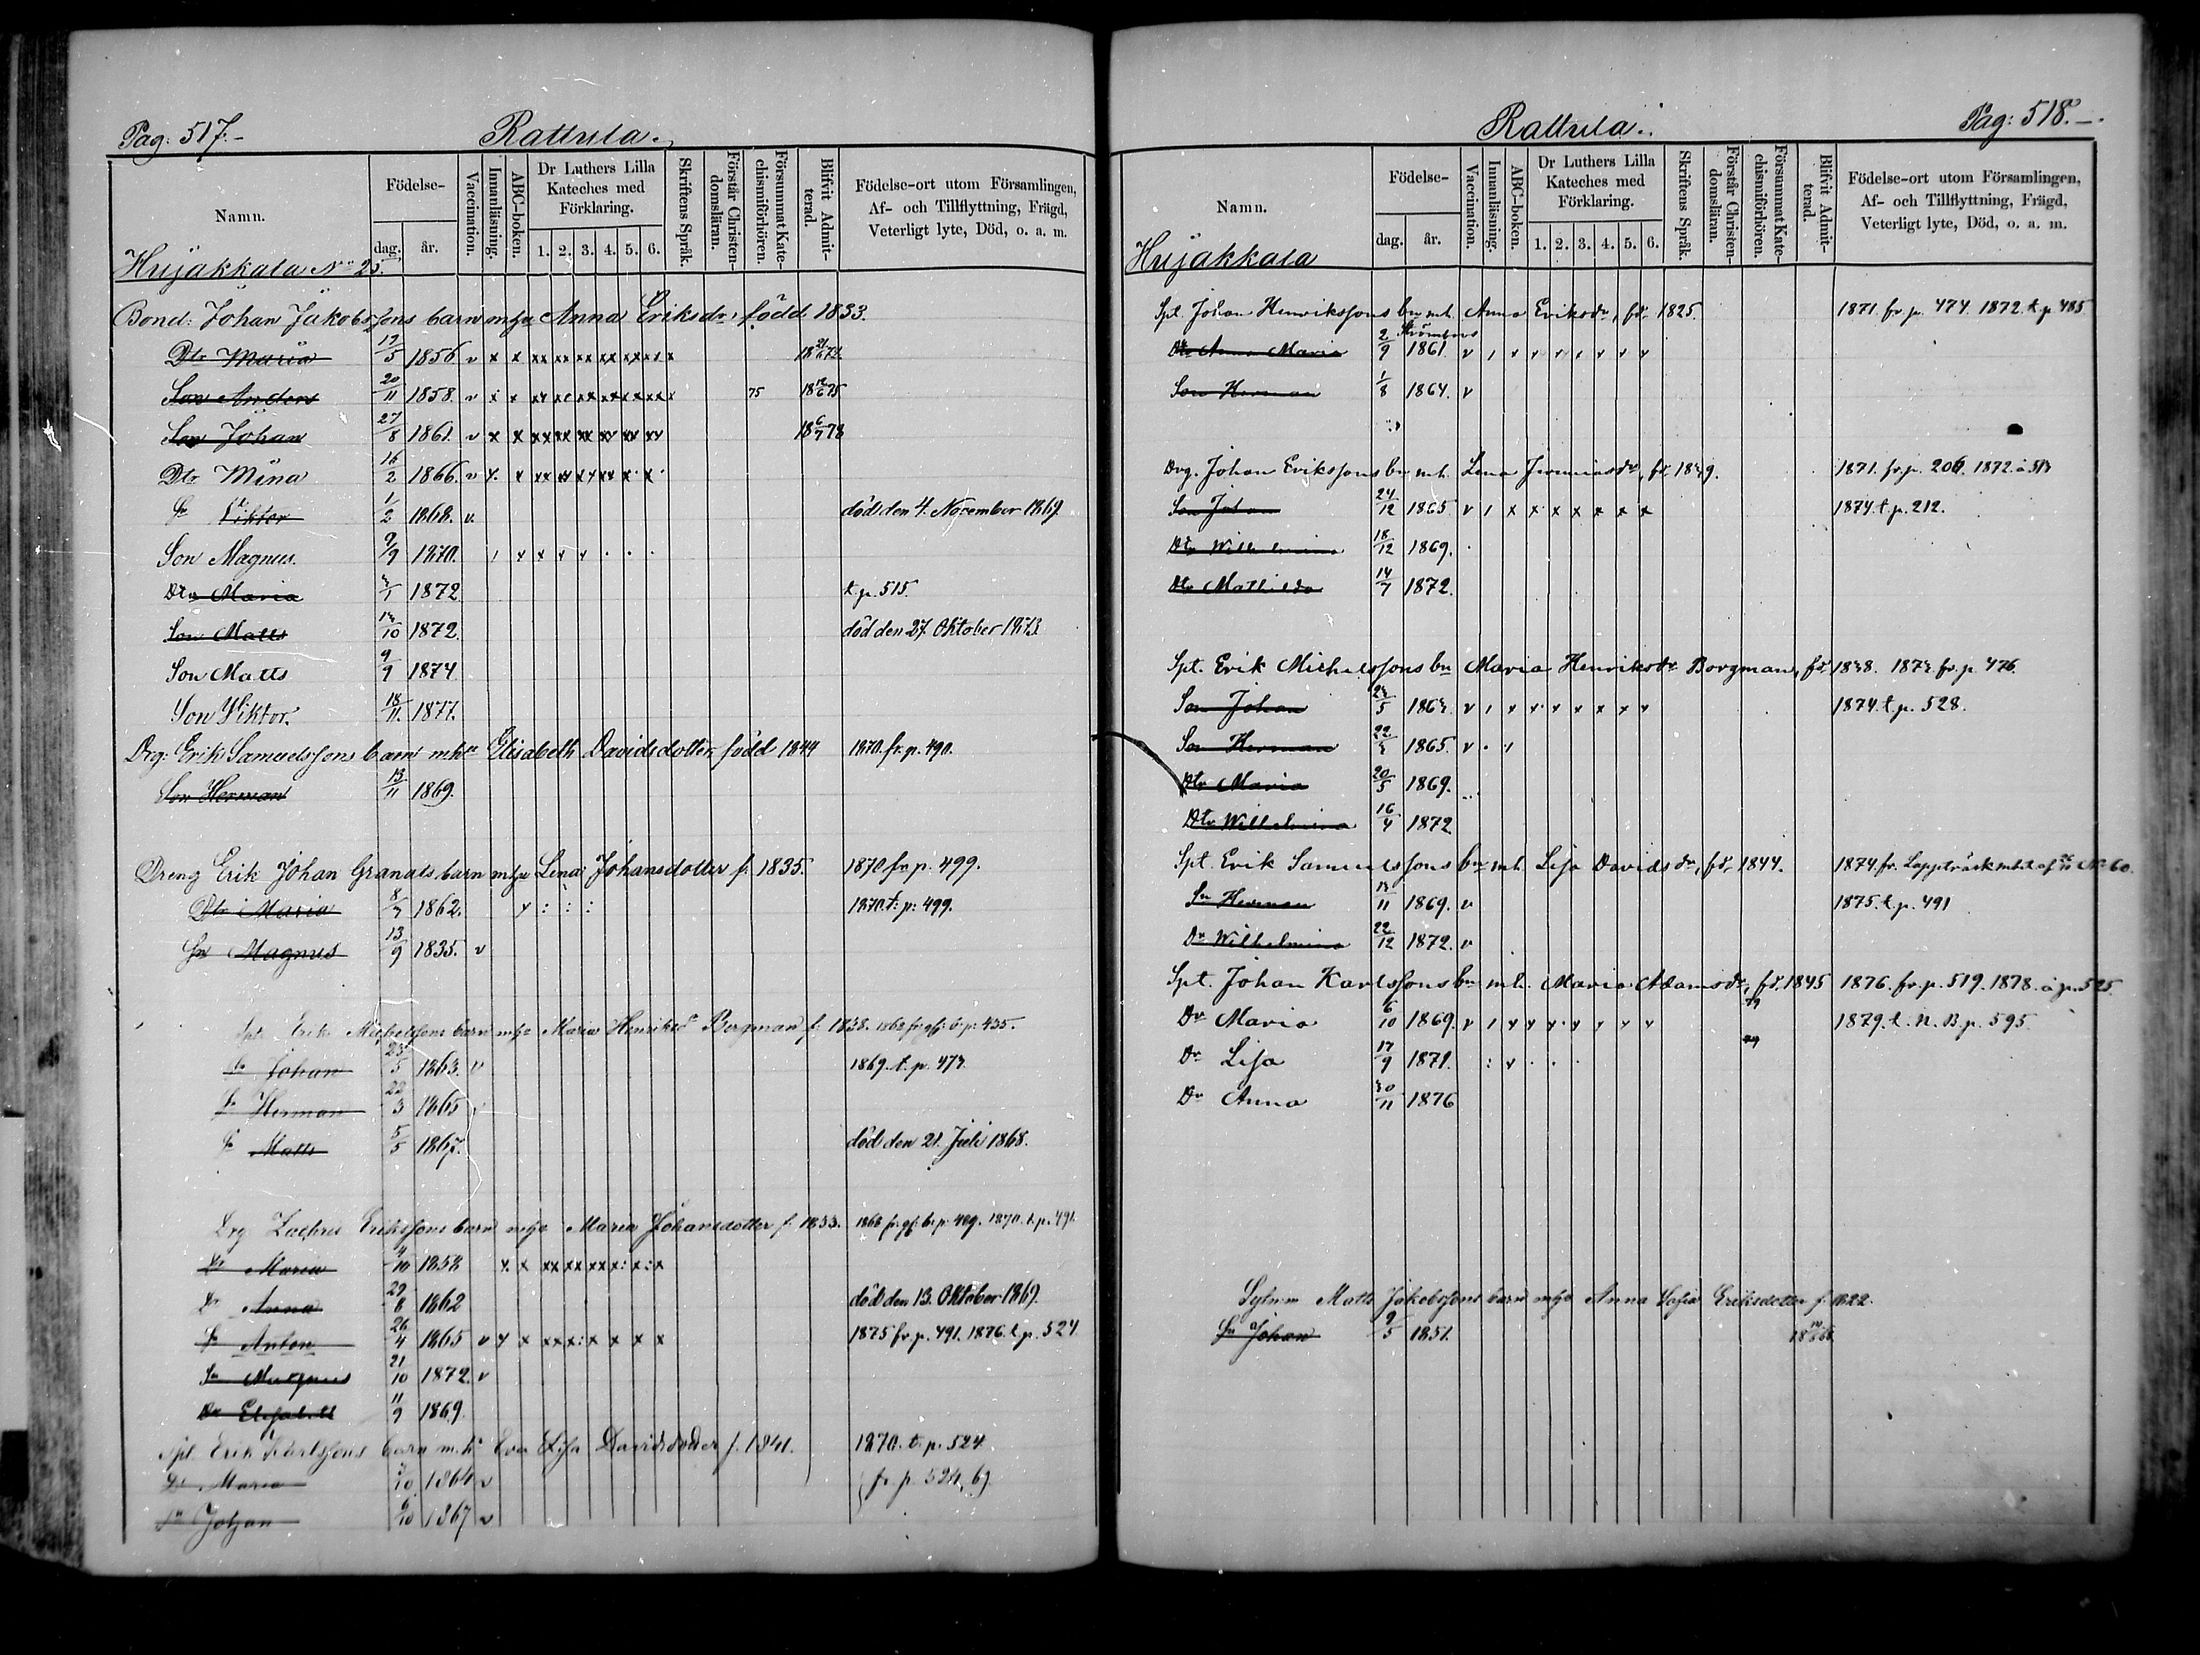 Pag: 517.-
Rattula.
Namn.
Födelse-
dag.
år.
Vaccination.
Innanläsning.
ABC-boken.
Dr Luthers Lilla
Kateches med
Förklaring.
1. 2. 3. 4. 5. 6.
Skriftens Språk.
Förstår Christen-
domsläran.
Försummat Kate-
chismiförhören.
Blifvit Admit-
terad.
Födelse-ort utom Församlingen,
Af- och Tillflyttning, Frägd,
Veterligt lyte, Död, o. a. m.
Hujakkala No 25.
Bond: Johan Jakobssons barn mhu Anna Eriksdr. född 1833.
Dtr Maria 17/5 1856 v x x xx xx xx xx xx x
Son Anders 20/11 1858. v x x 75
Son Johan 27/8 1861. v x x xx xx xx xx xx xx
Dtr Mina 16/2 1866. v
Sn Viktor 1/2 1868. v. död den 4. November 1869.
Son Magnus. 9/9 1870.
Dtr Maria 1872 t.p. 515.
Son Matts 1872. död den 27. Oktober 1873.
Son Matts 9/9 1874
Son Viktor. 18/11. 1877.
Drg: Erik Samuelssons barn mhu Elisabeth Davidsdotter, född 1844 1870. fr. p. 490.
Son Herman 13/11 1869.
Dreng Erik Johan Granats barn mhu Lena Johansdotter f. 1835. 1870 fr. p. 499.
Dtr Maria 1862. x : : : 1870. t: p: 499.
Sn Magnus 13/9 1835. v
Spt. Erik Michelssons barn mhu Maria Henriksd Bergman f: 1838. p: 435.
Sn Johan 23/5 1863. v 1869. t. p. 473.
Sn Herman 22/3 1865
Sn Matts 5/5 1867. död den 21. Juli 1868.
Drg Zachris Erikssons barn mhu Maria Johansdotter f. 1833. 1870. t. p. 491.
Dr Maria 4/10 1858
Dr Anna 29/8 1862 död den 13. Oktober 1869.
Sn Anton 26/4 1865 v 1875 fr. p. 491. 1876. t. p. 524
Sn Magnus 21/10 1872. v
Dr Elisabet 11/9 1869.
Spt Erik Karlssons barn m. hu Eva Lisa Davidsdotter f. 1841. 1870. t. p. 524.
Dr Maria 1864 v fr. p. 524, 69.
Sn Johan 6/10 1867 v
Rattula.
Pag: 518.-
Namn.
Födelse-
dag.
år.
Vaccination.
Innanläsning.
ABC-boken.
Dr Luthers Lilla
Kateches med
Förklaring.
1. 2. 3. 4. 5. 6.
Skriftens Språk.
Förstår Christen-
domsläran.
Försummat Kate-
chismiförhören.
Blifvit Admit-
terad.
Födelse-ort utom Församlingen,
Af- och Tillflyttning, Frägd,
Veterligt lyte, Död, o. a. m.
Hujakkala
Spt. Johan Henrikssons bn mh. Anna Eriksdr, fd. 1825. 1871. fr. p. 474. 1872. t. p. 485.
Dtr Anna Maria 2/9 1861. v
Son Herman 1/8 1864. v
Drg. Johan Erikssons bn mh. Lena Jeremiasdr, fd. 1839. 1871. fr. p. 206.
Son Johan 24/12 1865 v 1874. t. p. 212.
Dtr Wilhelmina 18/12 1869.
Dtr Mathilda 14/7 1872.
Spt. Erik Michelssons bn Maria Henriksdr Borgman, fd. 1838. 1873. fr. p. 476.
Son Johan 23/5 1863. v 1874. t. p. 528.
Son Herman 22/3 1865. v
Dtr Maria 20/5 1869.
Dtr Wilhelmina 16/4 1872
Spt. Erik Samuelssons bn mh. Lisa Davidsdr, fd. 1844. 1874. fr. Lappträsk No 60.
Sn Herman 13/11 1869. v 1875. t. p. 491
Dr Wilhelmina 22/12 1872. v
Spt. Johan Karlssons bn mh. Maria Adamsdr, fd. 1845 1876. fr. p. 519. 1878. à p. 525.
Dr Maria 6/10 1869. v 79 1879. t. N. B. p. 595.
Dr Lisa 17/9 1871. 79
Dr Anna 30/11 1876
Matts Jakobssons barn mhu Anna Sofia Eriksdotter f. 1822.
Sn Johan 9/5 1851.